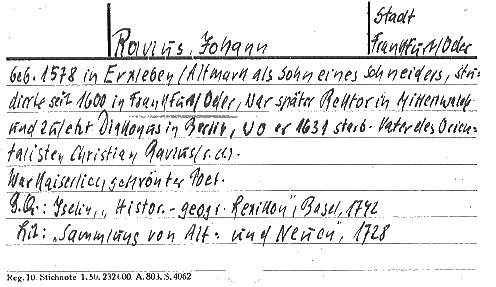 Stadt
Ravius, Johann Frankfurt/Oder
geb. 1578 in Erxleben/Altmark als Sohn eines Schneiders, stu-
dirrte seit 1600 in Frankfurt/Oder, war später Rektor in Mittenwalde
und zuletzt Diakonus in Berlin, wo er 1631 starb. Vater des Orien-
talisten Christian Ravius (s.d.).
War Kaiserlich gekrönter Poet.
B.Qu.: Iselin, "Histor.-geogr. Lexikon", Basel, 1742
Lit: "Sammlung von Alt- und Neuen", 1728
Reg. 10. Stichnote 1.50. 232400. A. 803. S. 4062